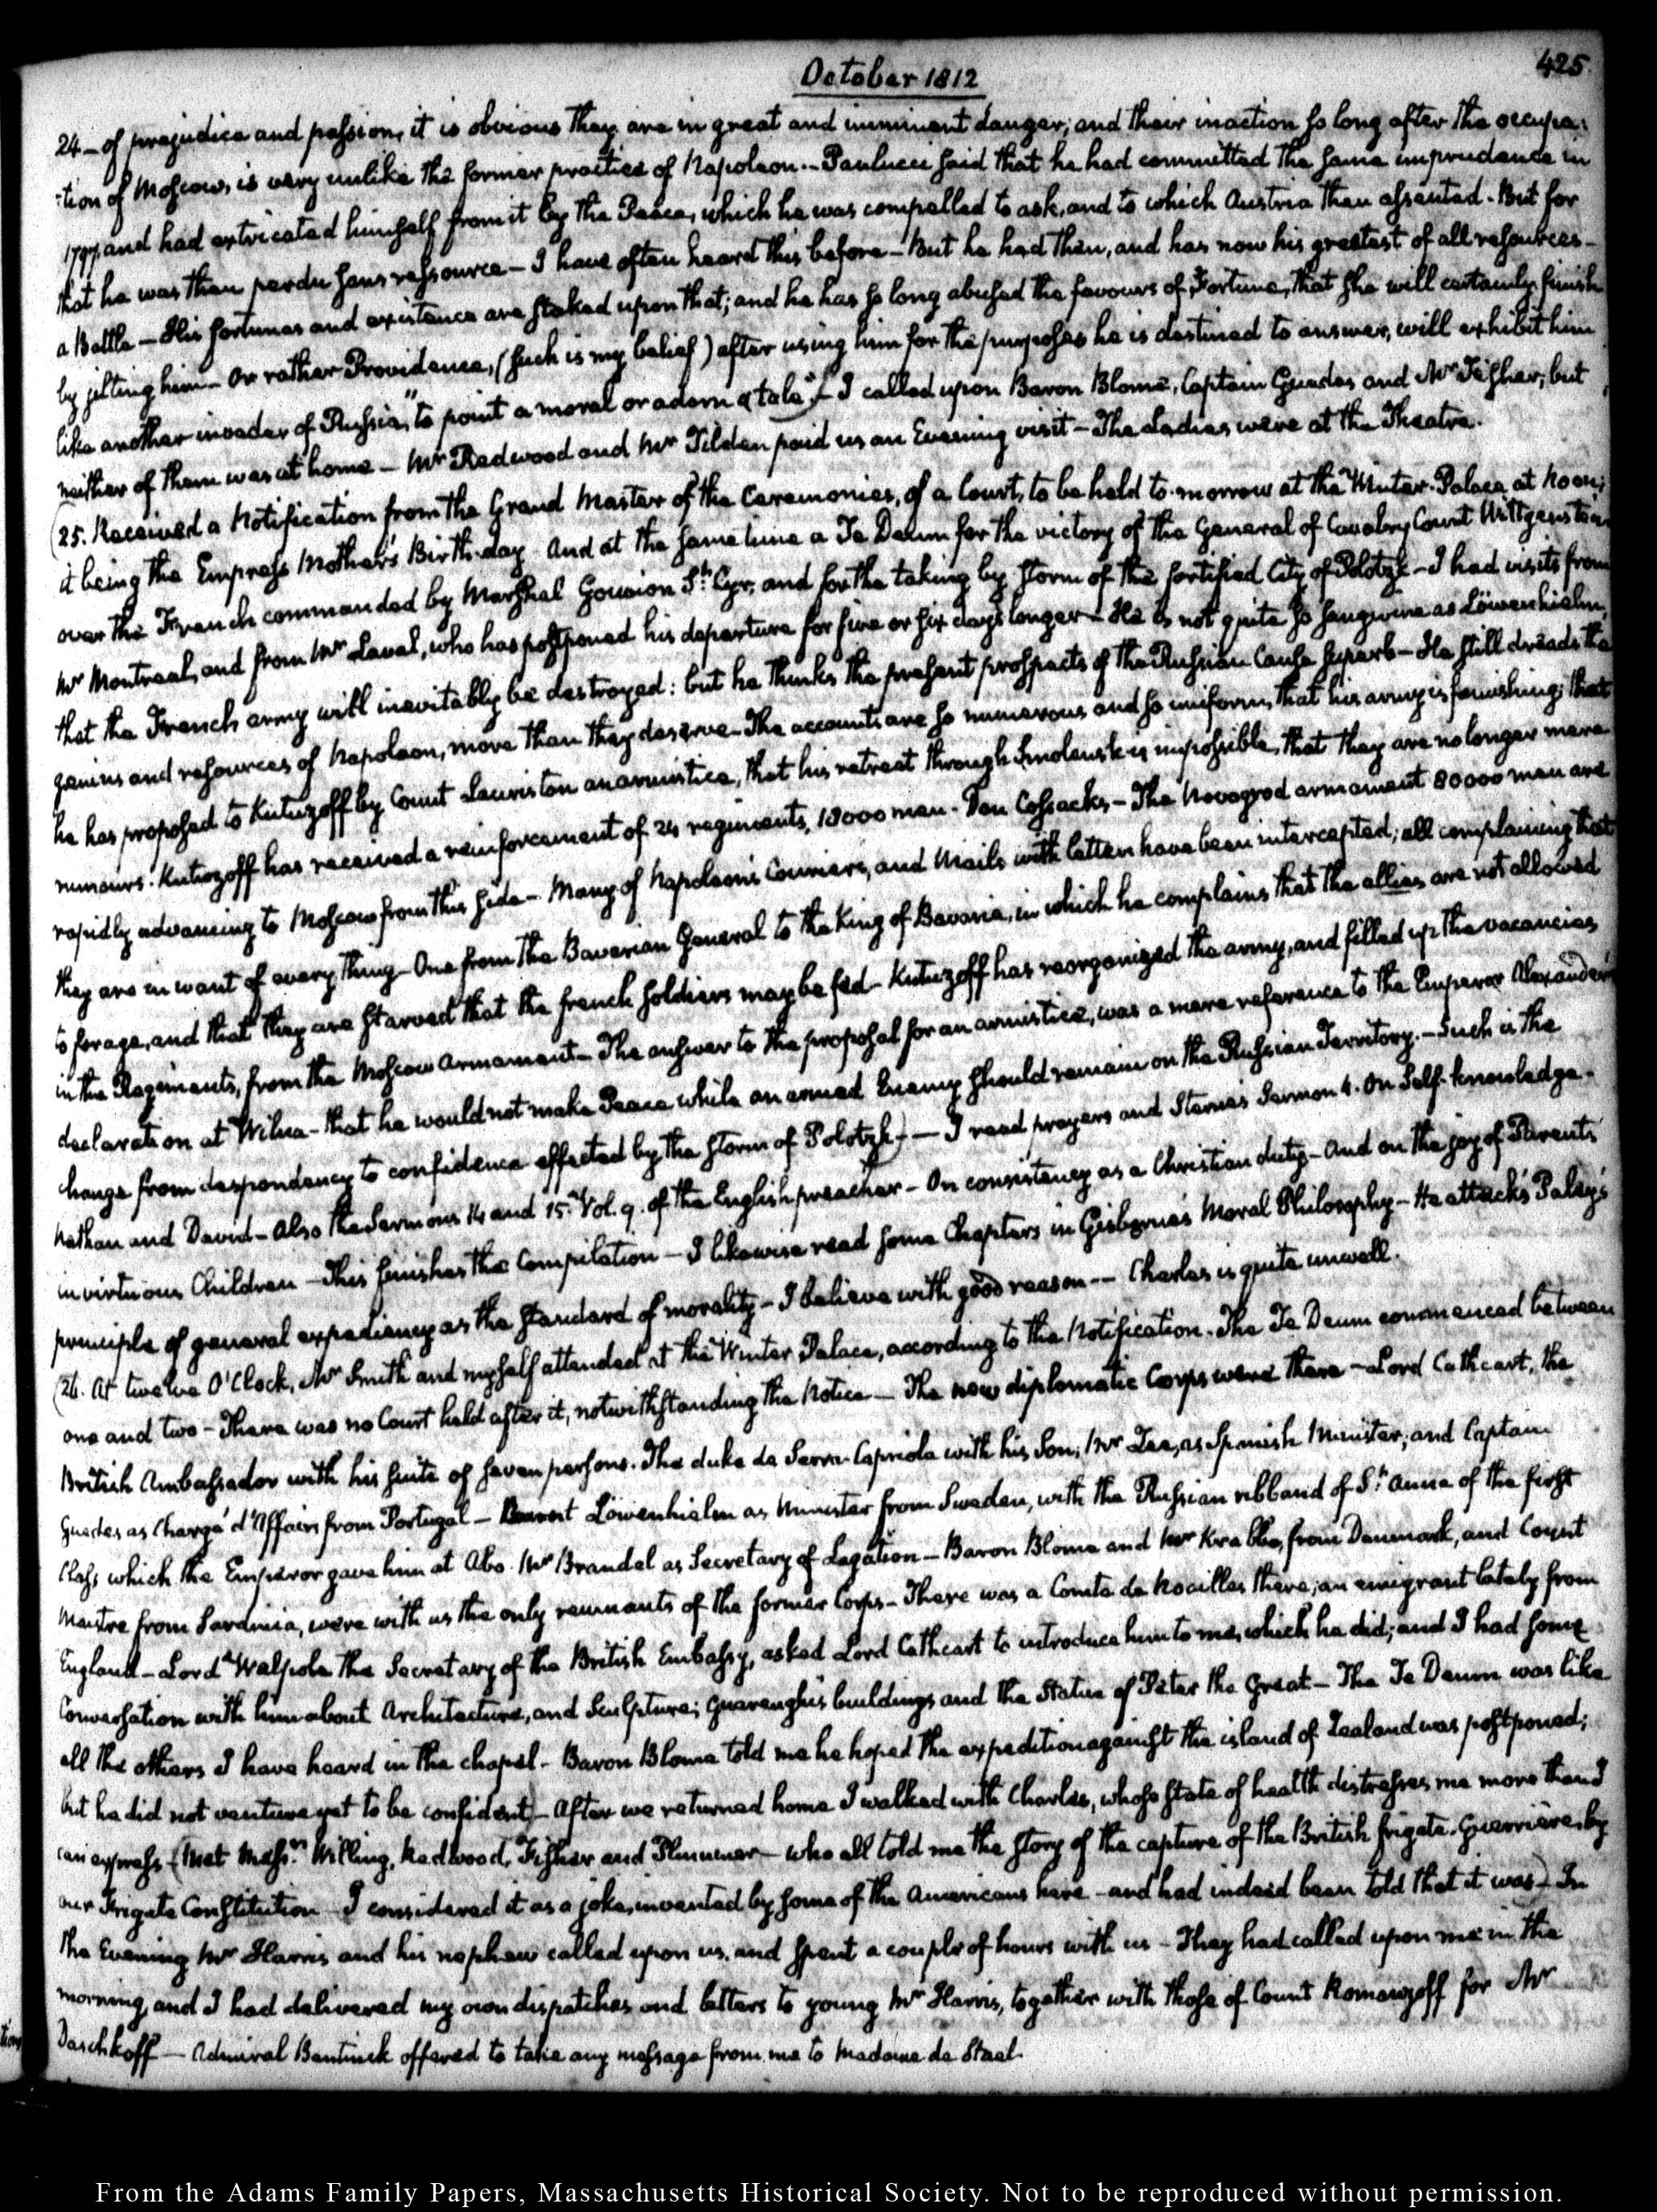 October 1812
425.
24 - of prejudice and passion, it is obvious they are in great and imminent danger; and their inaction so long after the occupa:
:tion of Moscow, is very unlike the former practice of Napoleon. - Paulucci said that he had committed the same imprudence in
1797, and had extricated himself from it by the Peace, which he was compelled to ask, and to which Austria then assented. But for
that he was then perdu sans ressource - I have often heard this before - But he had then, and has now his greatest of all resources -
a Battle - His fortunes and existence are staked upon that; and he has so long abused the favours of Fortune, that she will certainly finish
by jilting him - Or rather Providence, (such is my belief) after using him for the purposes he is destined to answer, will exhibit him
like another invader of Russia, "to point a moral or adorn a tale" - I called upon Baron Blome, Captain Guedes and Mr Fisher; but
neither of them was at home - Mr Redwood and Mr Tilden paid us an Evening visit - The Ladies were at the Theatre.
(25. Received a Notification from the Grand Master of the Ceremonies, of a Court, to be held to-morrow at the Winter-Palace at Noon;
it being the Empress Mother's Birth-day - And at the same time a Te Deum for the victory of the General of Cavalry, Count Wittgenstein
over the French commanded by Marshal Gouvion St. Cyr, and for the taking by storm of the fortified City of Polotzk - I had visits from
Mr Montreal, and from Mr Laval, who has postponed his departure for five or six days longer - He is not quite so sanguine as Löwenhielm,
that the French army will inevitably be destroyed: but he thinks the present prospects of the Russian Cause superb - He still dreads the
genius and resources of Napoleon, more than they deserve - The accounts are so numerous and so uniform, that his army is famishing; that
he has proposed to Kutuzoff by Count Lauriston an armistice, that his retreat through Smolensk is impossible, that they are no longer mere
rumours. Kutuzoff has received a reinforcement of 24 regiments, 18000 men. Don Cossacks - The Novogrod armament 80000 men are
rapidly advancing to Moscow from this side - Many of Napoleon's Couriers, and Mails with letters have been intercepted; all complaining that
they are in want of every thing - One from the Bavarian General to the King of Bavaria, in which he complains that the allies are not allowed
to forage, and that they are starved that the french soldiers may be fed - Kutuzoff has reorganized the army, and filled up the vacancies
in the Regiments, from the Moscow Armament - The answer to the proposal for an armistice, was a mere reference to the Emperor Alexander's
declaration at Wilna - that he would not make Peace while an armed Enemy should remain on the Russian Territory. - Such is the
change from despondency to confidence effected by the storm of Polotzk) - I read prayers and Sterne's Sermon 4. On Self-knowledge -
Nathan and David - Also the Sermons 14 and 15. Vol. 9. of the English preacher - On consistency as a Christian duty - And on the joy of Parents
in virtuous Children - This finishes the Compilation - I likewise read some Chapters in Gisborne's Moral Philosophy - He attacks Paley's
principle of general expediency as the standard of morality - I believe with good reason -- Charles is quite unwell.
(26. At twelve O'Clock, Mr Smith and myself attended at the Winter Palace, according to the Notification. The Te Deum commenced between
one and two - There was no Court held after it, notwithstanding the Notice - The new diplomatic Corps were there - Lord Cathcart, the
British Ambassador with his suite of seven persons. The duke de Serra-Capriola with his Son; Mr Zea, as Spanish Minister; and Captain
Guedes as Chargé d'Affairs from Portugal - Löwenhielm as Minister from Sweden, with the Russian ribband of St. Anna of the first
Class, which the Emperor gave him at Abo. Mr Brandel as Secretary of Legation - Baron Blome and Mr Krabbe, from Denmark, and Count
Maistre from Sardinia, were with us the only remnants of the former Corps - There was a Comte de Noailles there; an emigrant lately from
England - Lord Walpole the Secretary of the British Embassy, asked Lord Cathcart to introduce him to me, which he did; and I had some
Conversation with him about Architecture, and Sculpture; Guarenghi's buildings and the Statue of Peter the Great - The Te Deum was like
all the others I have heard in the chapel - Baron Blome told me he hoped the expedition against the island of Zealand was postponed;
but he did not venture yet to be confident) - After we returned home I walked with Charles, whose state of health distresses me more than I
can express - (Met Messrs. Willing, Redwood, Fisher and Plummer - who all told me the story of the capture of the British frigate Guerriere, by
our Frigate Constitution - I considered it as a joke, invented by some of the Americans here - and had indeed been told that it was) - In
the Evening Mr Harris and his nephew called upon us, and spent a couple of hours with us - They had called upon me in the
morning, and I had delivered my own dispatches and letters to young Mr Harris, together with those of Count Romanzoff for Mr
Daschkoff - Admiral Bentinck offered to take any message from me to Madame de Stael.
From the Adams Family Papers, Massachusetts Historical Society. Not to be reproduced without permission.